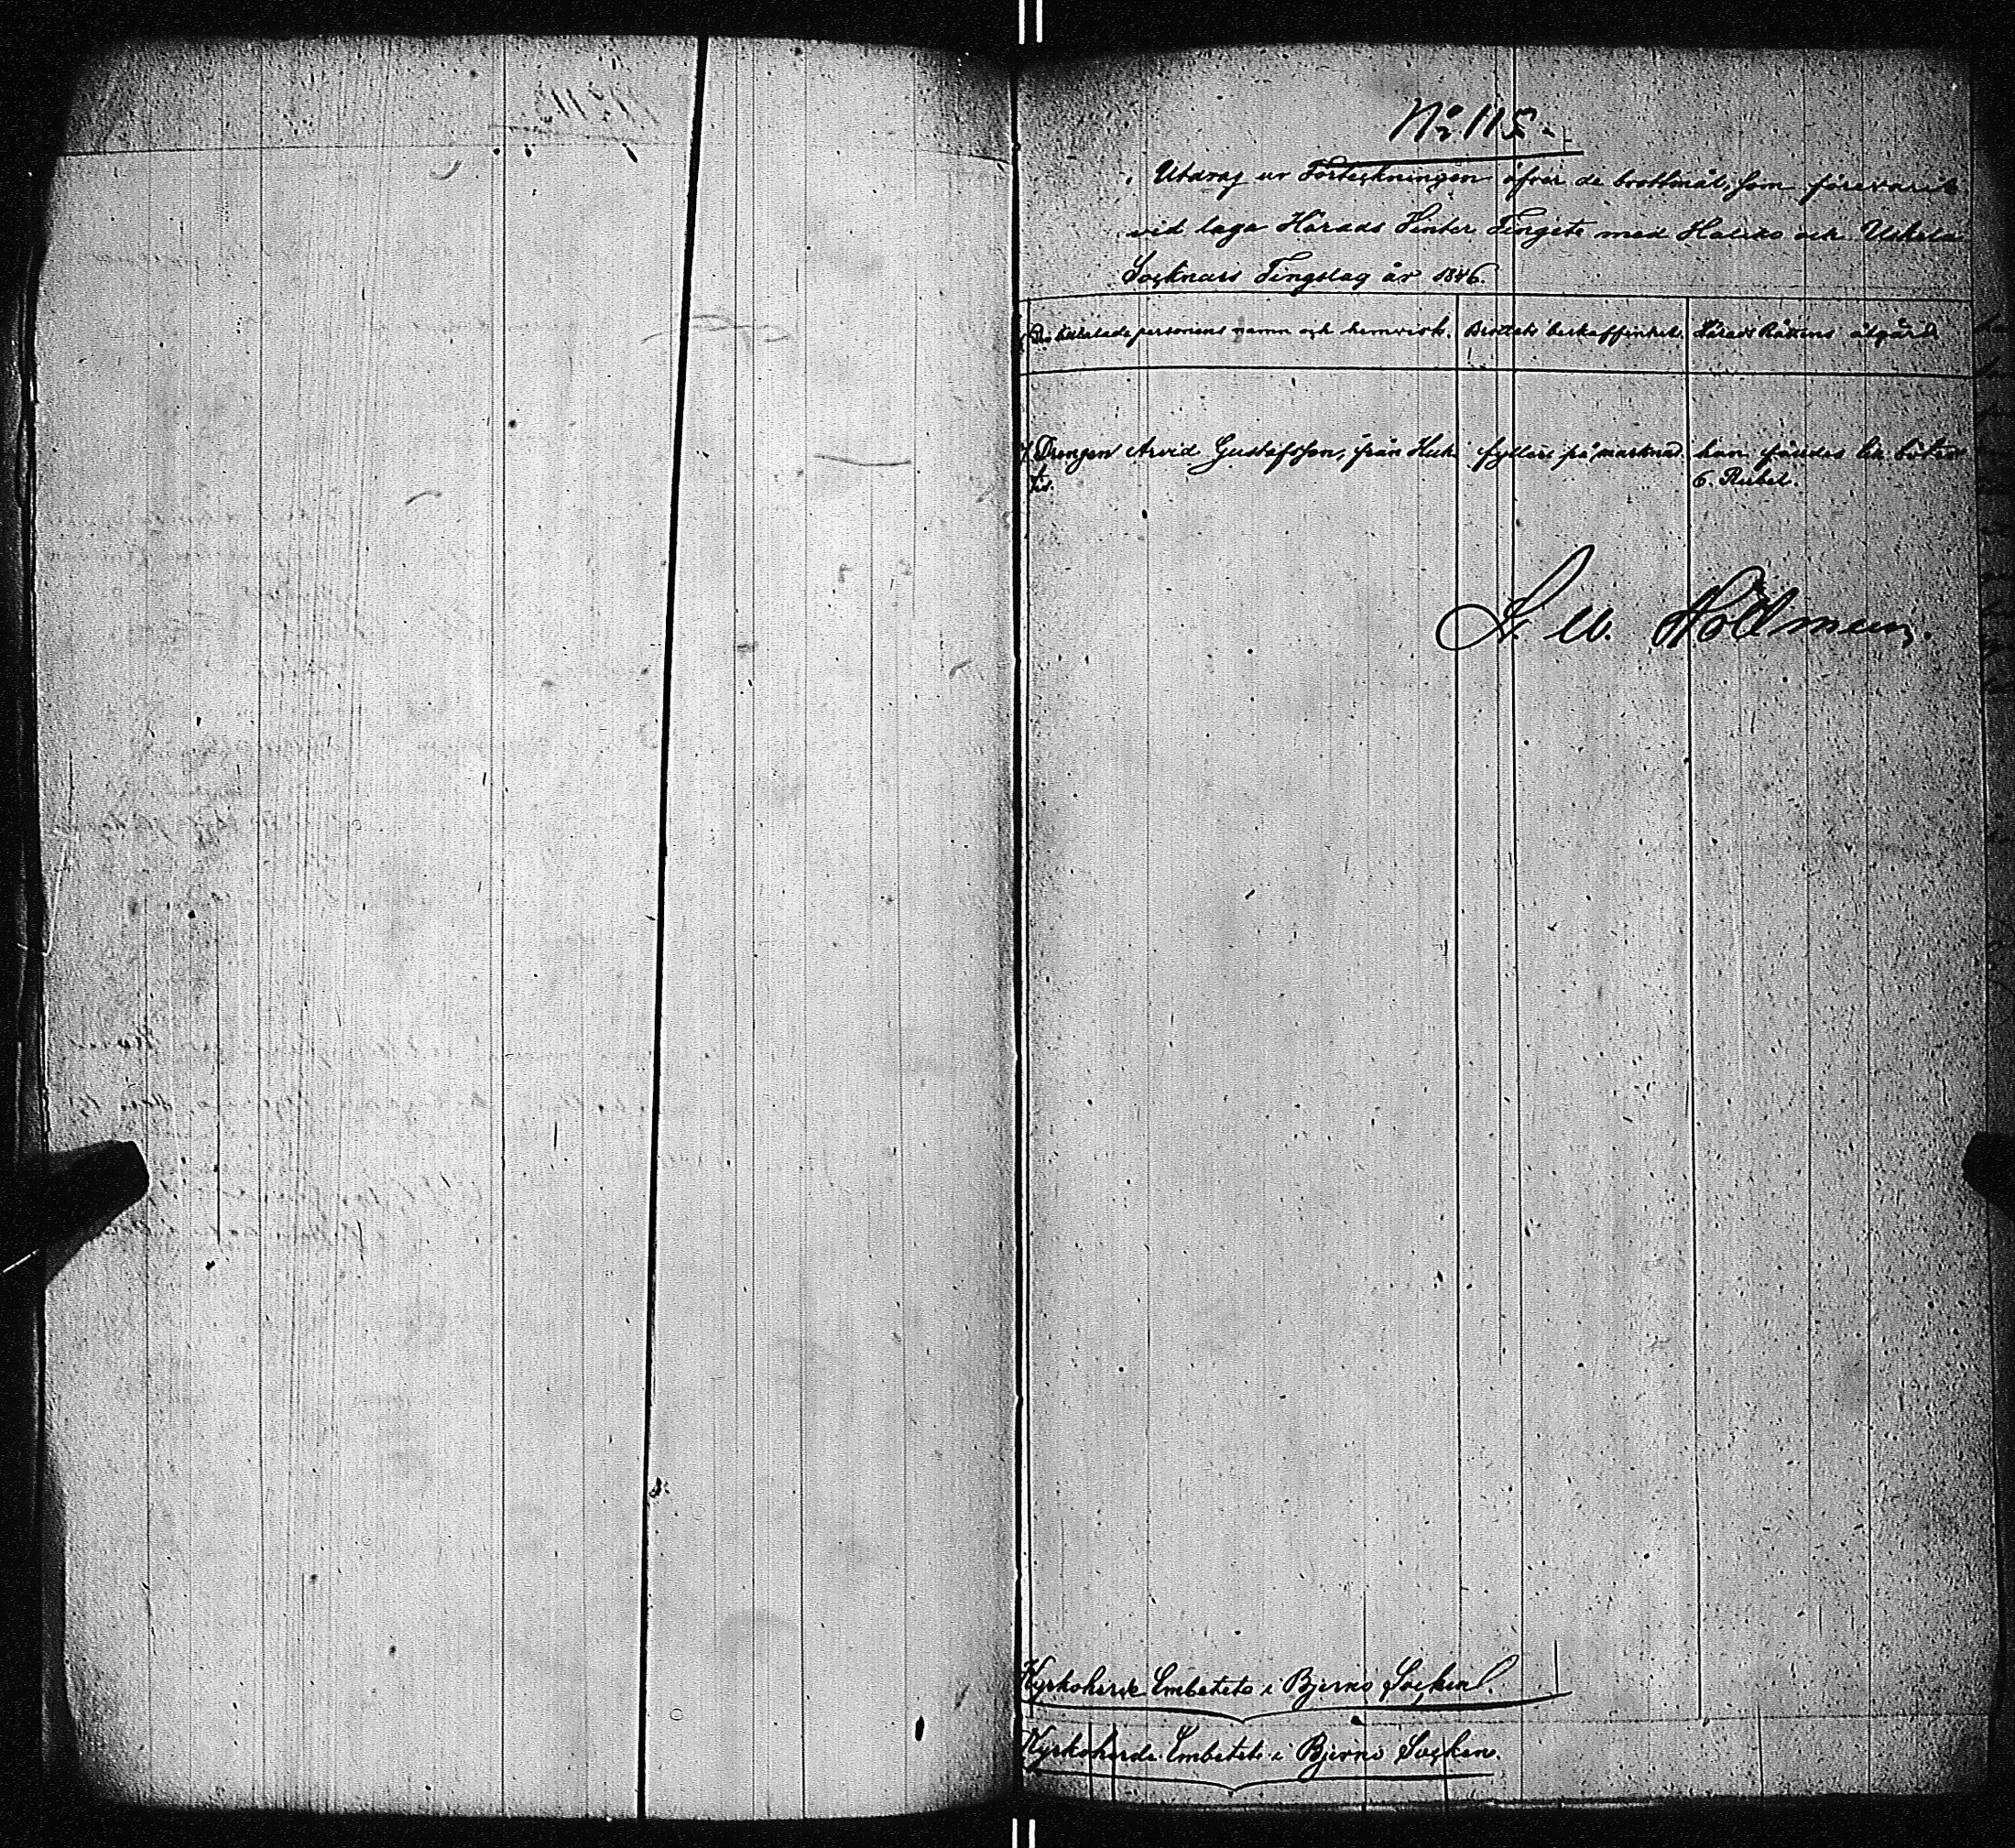 No 115.
Utdrag ur Förteckningen öfver de brottmål, som förevarit
vid laga Härads Vinter Tingete med Haliko och Uskela
Socknars Tingslag år 1846.
De tilltalade personens namn och hemvist. Brottets beskaffenhet. Härads Rättens åtgärd
Drengen Arvid Gustafsson, från Huh fylleri på marknad. han fäldes böta
tis. 6. Rubel.
Kyrkoherde Embetets i Bjerno Socken.
Kyrkoherde Embetets i Bjerno Socken.